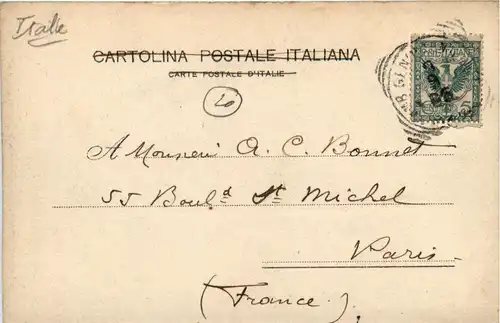 Italie
CARTOLINA POSTALE ITALIANA
CARTE POSTALE D'ITALIE
20
A Monsieur A. C. Bonnet
55 Boul.d St Michel
Paris
(France).